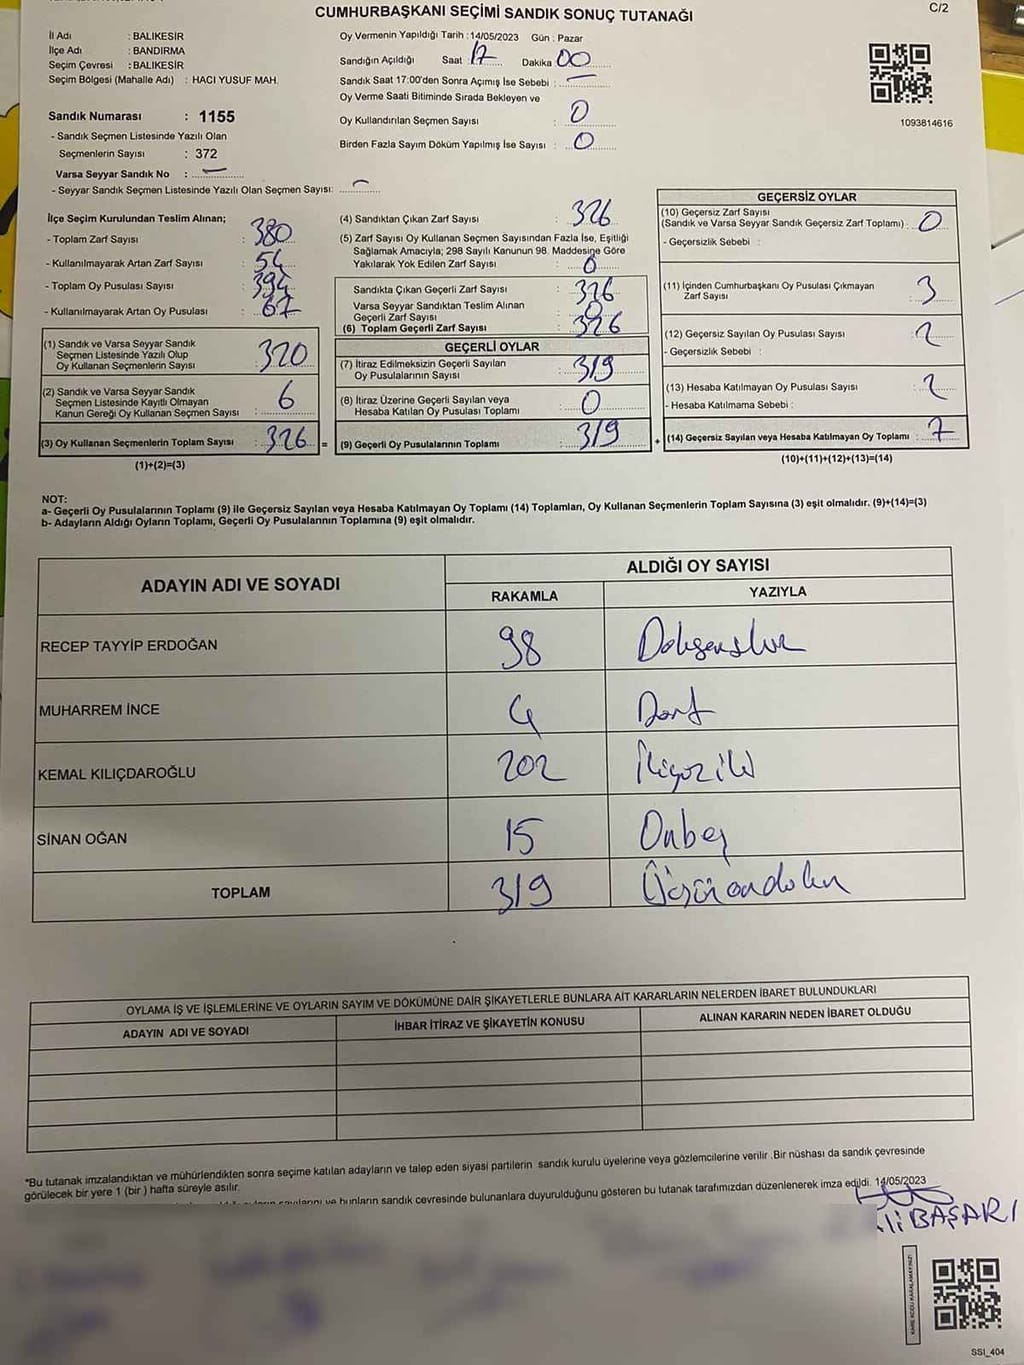 CUMHURBAŞKANI SEÇİMİ SANDIK SONUÇ TUTANAĞI
C/2
İl Adı : BALIKESİR
İlçe Adı : BANDIRMA
Seçim Çevresi : BALIKESİR
Seçim Bölgesi (Mahalle Adı) : HACI YUSUF MAH.
Sandık Numarası : 1155
- Sandık Seçmen Listesinde Yazılı Olan
Seçmenlerin Sayısı : 372
Varsa Seyyar Sandık No : —
- Seyyar Sandık Seçmen Listesinde Yazılı Olan Seçmen Sayısı: —
Oy Vermenin Yapıldığı Tarih : 14/05/2023 Gün : Pazar
Sandığın Açıldığı Saat 17 Dakika 00
Sandık Saat 17:00'den Sonra Açımış İse Sebebi : —
Oy Verme Saati Bitiminde Sırada Bekleyen ve
Oy Kullandırılan Seçmen Sayısı : 0
Birden Fazla Sayım Döküm Yapılmış İse Sayısı : 0
1093814616
İlçe Seçim Kurulundan Teslim Alınan;
- Toplam Zarf Sayısı : 380
- Kullanılmayarak Artan Zarf Sayısı : 54
- Toplam Oy Pusulası Sayısı : 394
- Kullanılmayarak Artan Oy Pusulası : 67
(1) Sandık ve Varsa Seyyar Sandık
Seçmen Listesinde Yazılı Olup
Oy Kullanan Seçmenlerin Sayısı : 320
(2) Sandık ve Varsa Seyyar Sandık
Seçmen Listesinde Kayıtlı Olmayan
Kanun Gereği Oy Kullanan Seçmen Sayısı : 6
(3) Oy Kullanan Seçmenlerin Toplam Sayısı : 326 =
(1)+(2)=(3)
(4) Sandıktan Çıkan Zarf Sayısı : 326
(5) Zarf Sayısı Oy Kullanan Seçmen Sayısından Fazla İse, Eşitliği
Sağlamak Amacıyla; 298 Sayılı Kanunun 98. Maddesine Göre
Yakılarak Yok Edilen Zarf Sayısı : 0
Sandıkta Çıkan Geçerli Zarf Sayısı : 326
Varsa Seyyar Sandıktan Teslim Alınan
Geçerli Zarf Sayısı : 0
(6) Toplam Geçerli Zarf Sayısı : 326
GEÇERLİ OYLAR
(7) İtiraz Edilmeksizin Geçerli Sayılan
Oy Pusulalarının Sayısı : 319
(8) İtiraz Üzerine Geçerli Sayılan veya
Hesaba Katılan Oy Pusulası Toplamı : 0
(9) Geçerli Oy Pusulalarının Toplamı : 319 +
GEÇERSİZ OYLAR
(10) Geçersiz Zarf Sayısı
(Sandık ve Varsa Seyyar Sandık Geçersiz Zarf Toplamı) : 0
- Geçersizlik Sebebi :
(11) İçinden Cumhurbaşkanı Oy Pusulası Çıkmayan
Zarf Sayısı : 3
(12) Geçersiz Sayılan Oy Pusulası Sayısı : 2
- Geçersizlik Sebebi :
(13) Hesaba Katılmayan Oy Pusulası Sayısı : 2
- Hesaba Katılmama Sebebi :
(14) Geçersiz Sayılan veya Hesaba Katılmayan Oy Toplamı : 7
(10)+(11)+(12)+(13)=(14)
NOT:
a- Geçerli Oy Pusulalarının Toplamı (9) ile Geçersiz Sayılan veya Hesaba Katılmayan Oy Toplamı (14) Toplamları, Oy Kullanan Seçmenlerin Toplam Sayısına (3) eşit olmalıdır. (9)+(14)=(3)
b- Adayların Aldığı Oyların Toplamı, Geçerli Oy Pusulalarının Toplamına (9) eşit olmalıdır.
ADAYIN ADI VE SOYADI
ALDIĞI OY SAYISI
RAKAMLA YAZIYLA
RECEP TAYYİP ERDOĞAN 98 Doksansekiz
MUHARREM İNCE 4 Dört
KEMAL KILIÇDAROĞLU 202 İkiyüziki
SİNAN OĞAN 15 Onbeş
TOPLAM 319 Üçyüzondokuz
OYLAMA İŞ VE İŞLEMLERİNE VE OYLARIN SAYIM VE DÖKÜMÜNE DAİR ŞİKAYETLERLE BUNLARA AİT KARARLARIN NELERDEN İBARET BULUNDUKLARI
ADAYIN ADI VE SOYADI İHBAR İTİRAZ VE ŞİKAYETİN KONUSU ALINAN KARARIN NEDEN İBARET OLDUĞU
*Bu tutanak imzalandıktan ve mühürlendikten sonra seçime katılan adayların ve talep eden siyasi partilerin sandık kurulu üyelerine veya gözlemcilerine verilir .Bir nüshası da sandık çevresinde
görülecek bir yere 1 (bir ) hafta süreyle asılır.
bunların sandık çevresinde bulunanlara duyurulduğunu gösteren bu tutanak tarafımızdan düzenlenerek imza edildi. 14/05/2023
BAŞARI
SSI_404